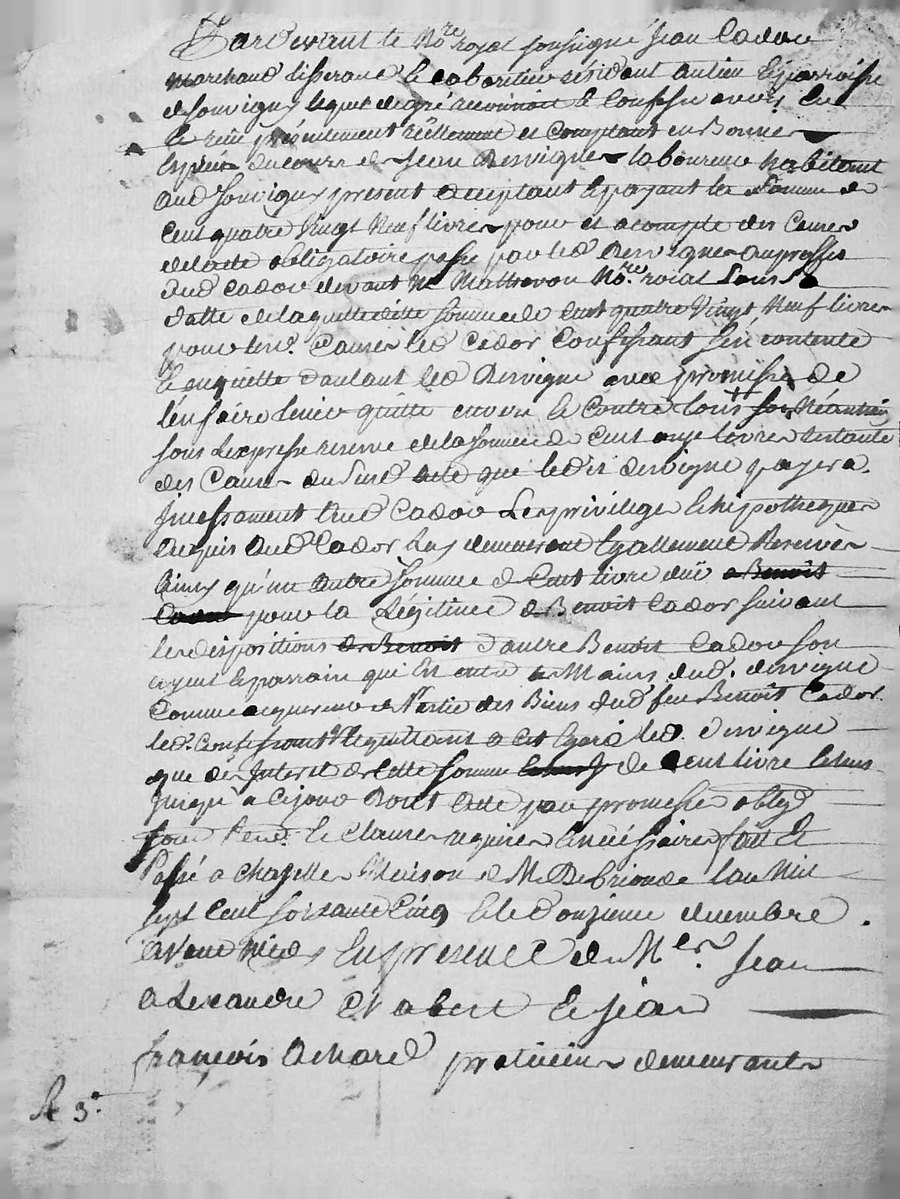 Pardevant le No.re royal soussigné Jean Cador
marchand tisserand & cabaretier résidant au lieu & parroisse
de souvigny lequel de gré reconnoit & confesse avoir eu
& reçu présentement réellement et comptant en Bonnes
espèces du cours de Jean Dervigne laboureur habitant
aud souvigny present acceptant & payant la somme de
cent quatre vingt neuf livres pour et acompte des causes
de lacte obligatoire passé par led Dervigne au proffit
dud Cador devant Me Mathevon No.re roial sous sa
datte de laquelle ditte somme de cent quatre vingt neuf livres
pour led. causes led Cador confessant sen contente
& en quitte dautant led Dervigne avec promesse de
len faire tenir quitte envers & contre tous
sous lexpresse reserve de la somme de cent onze livres restante
des causes du sus d acte que ledit dervigne payera
incessament aud Cador Les privilege & hipotheques
acquis aud Cador luy demeurent egallement Reservés
ainsy qu'une autre somme de cent livre duë a Benoit
Cador pour la Légitime de Benoit Cador suivant
les dispositions de Benoit d'autre Benoit Cador son
ayeul & parrain qui est entre les Mains dud. dervigne
comme acquereur de Partie des Biens dud feu Benoit Cador
led. confessant a cet egard led. dervigne
que des Interest de cette somme de cent livre
jusqu'a ce jour Dont acte par promesse oblig.d
sous & clauses requises & nécessaires fait &
Passé a Chazelles Maison de M Debrioude lan Mil
sept cent soixante cinq & le d'onzieme decembre
avant midy En presence de Me.rs Jean
alexandre Chabert & Jean
françois Achard praticiens demeurants